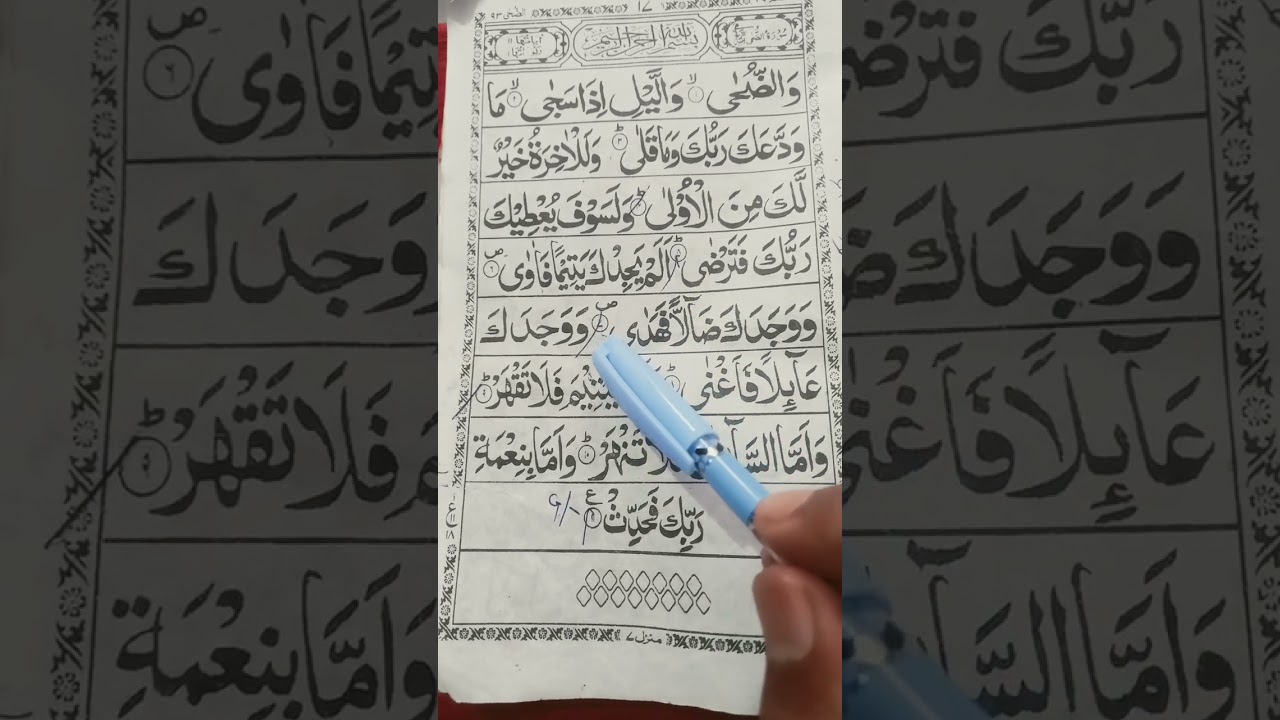 الضحى ٩٣
بسم الله الرحمن الرحيم
وَالضُّحٰى ۙ﴿۱﴾ وَالَّيْلِ اِذَا سَجٰى ۙ﴿۲﴾ مَا
وَدَّعَكَ رَبُّكَ وَمَا قَلٰى ؕ﴿۳﴾ وَلَلْاٰخِرَةُ خَيْرٌ
لَّكَ مِنَ الْاُوْلٰى ؕ﴿۴﴾ وَلَسَوْفَ يُعْطِيْكَ
رَبُّكَ فَتَرْضٰى ؕ﴿۵﴾ اَلَمْ يَجِدْكَ يَتِيْمًا فَاٰوٰى ۪ص﴿۶﴾
وَوَجَدَكَ ضَآلًّا فَهَدٰى ۪ص﴿۷﴾ وَوَجَدَكَ
عَآئِلًا فَاَغْنٰى ؕ الْيَتِيْمَ فَلَا تَقْهَرْ ؕ﴿۹﴾
وَاَمَّا السَّآ تَنْهَرْ ؕ﴿۱۰﴾ وَاَمَّا بِنِعْمَةِ
رَبِّكَ فَحَدِّثْ ﴿۱۱﴾ ع
منزل ٧